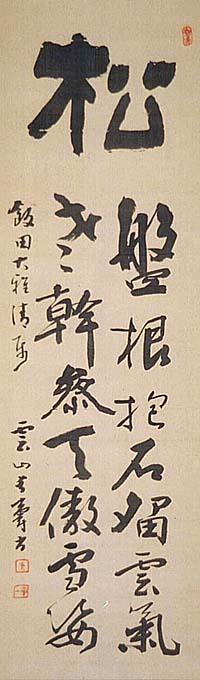 松
盤根抱石留雲氣
老幹参天傲雪姿
飯田大雅清属
雲山